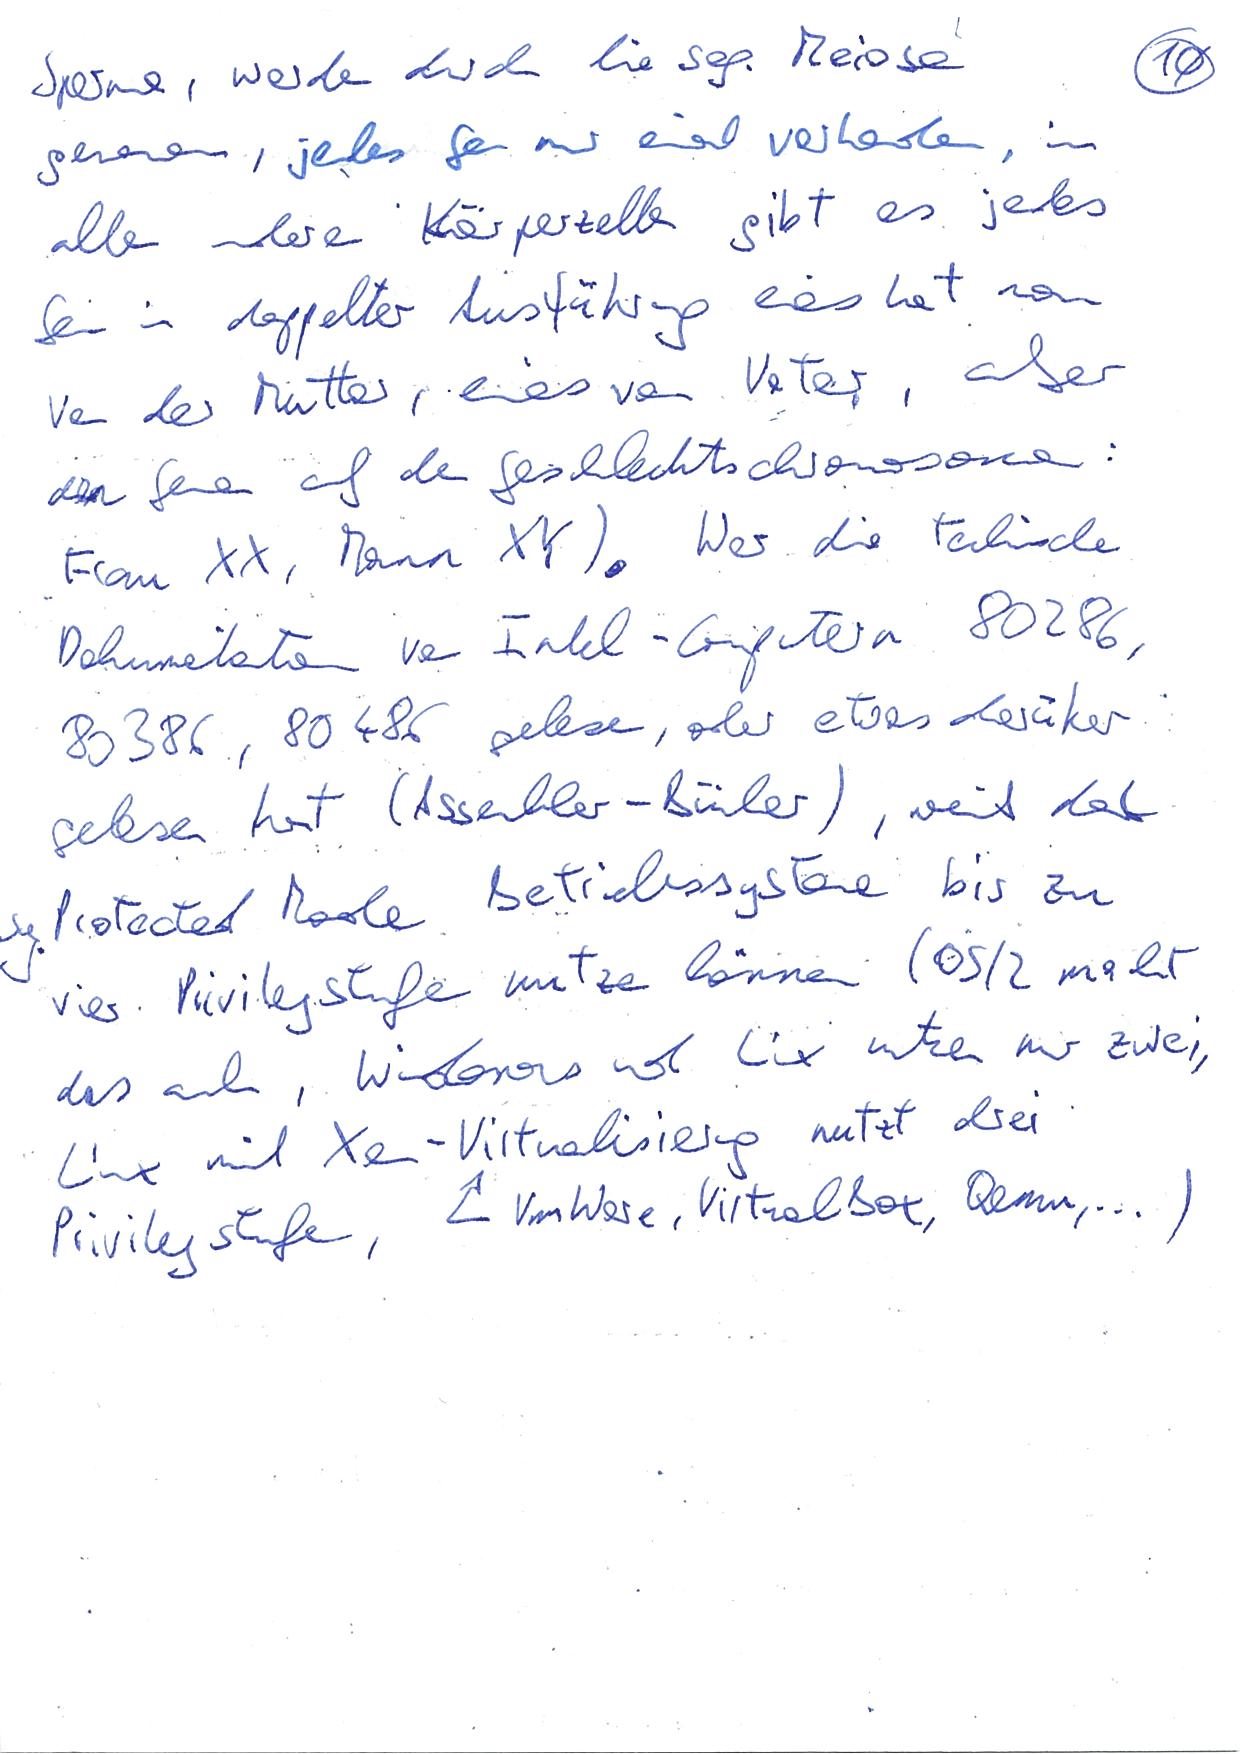 Sperma, werden durch die sog. Meiose 10
genommen, jedes Gen nur einmal vorhanden, in
allen anderen Körperzellen gibt es jedes
Gen in doppelter Ausführung eines hat man
von der Mutter, eines vom Vater, außer
den Genen auf den Geschlechtschromosomen:
Frau XX, Mann XY). Wer die technische
Dokumentation von Intel-Computern 80286,
80386, 80486 gelesen, oder etwas darüber
gelesen hat (Assembler-Bücher), weiß daß
sog. Protected Mode Betriebssysteme bis zu
vier Privilegstufen nutzen können (OS/2 macht
das auch, Windows und Linux nutzen nur zwei,
Linux mit Xen-Virtualisierung nutzt drei
Privilegstufen, ↑ VmWare, VirtualBox, Qemu,...)